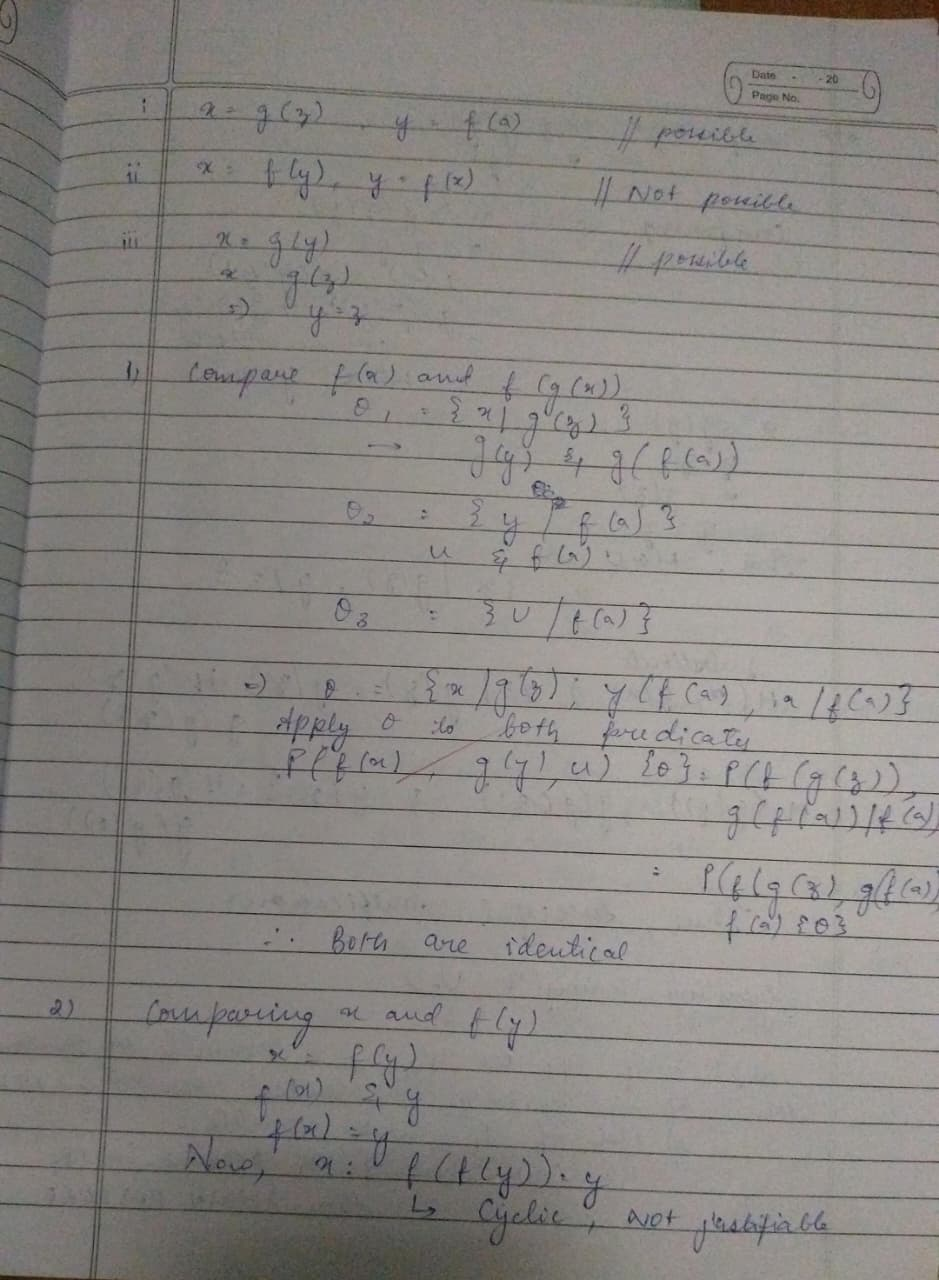 Date - - 20
Page No.
i x = g(z) , y = f(a) // possible
ii x = f(y), y = f(x) // Not possible
iii x = g(y) // possible
x = g(z)
=) y = z
1) Compare f(x) and f(g(x))
θ₁ = { x | g(z) }
→ g(y) & g(f(a))
θ₂ = { y / f(a) }
u & f(a).
θ₃ = { U / f(a) }
=) θ = { x / g(z) ; y (f(a) , u / f(a) }
Apply θ to both predicaty
P(f(x) , g(y), u) {θ} = P(f(g(z)),
g(f(a))/f(a)
= P(f(g(z), g(f(a))
f(a) {θ}
∴ Both are identical
2) Comparing x and f(y)
x = f(y)
f(x) & y
f(x) = y
Now, x = f(f(y)) = y
↳ Cyclic, Not justifiable